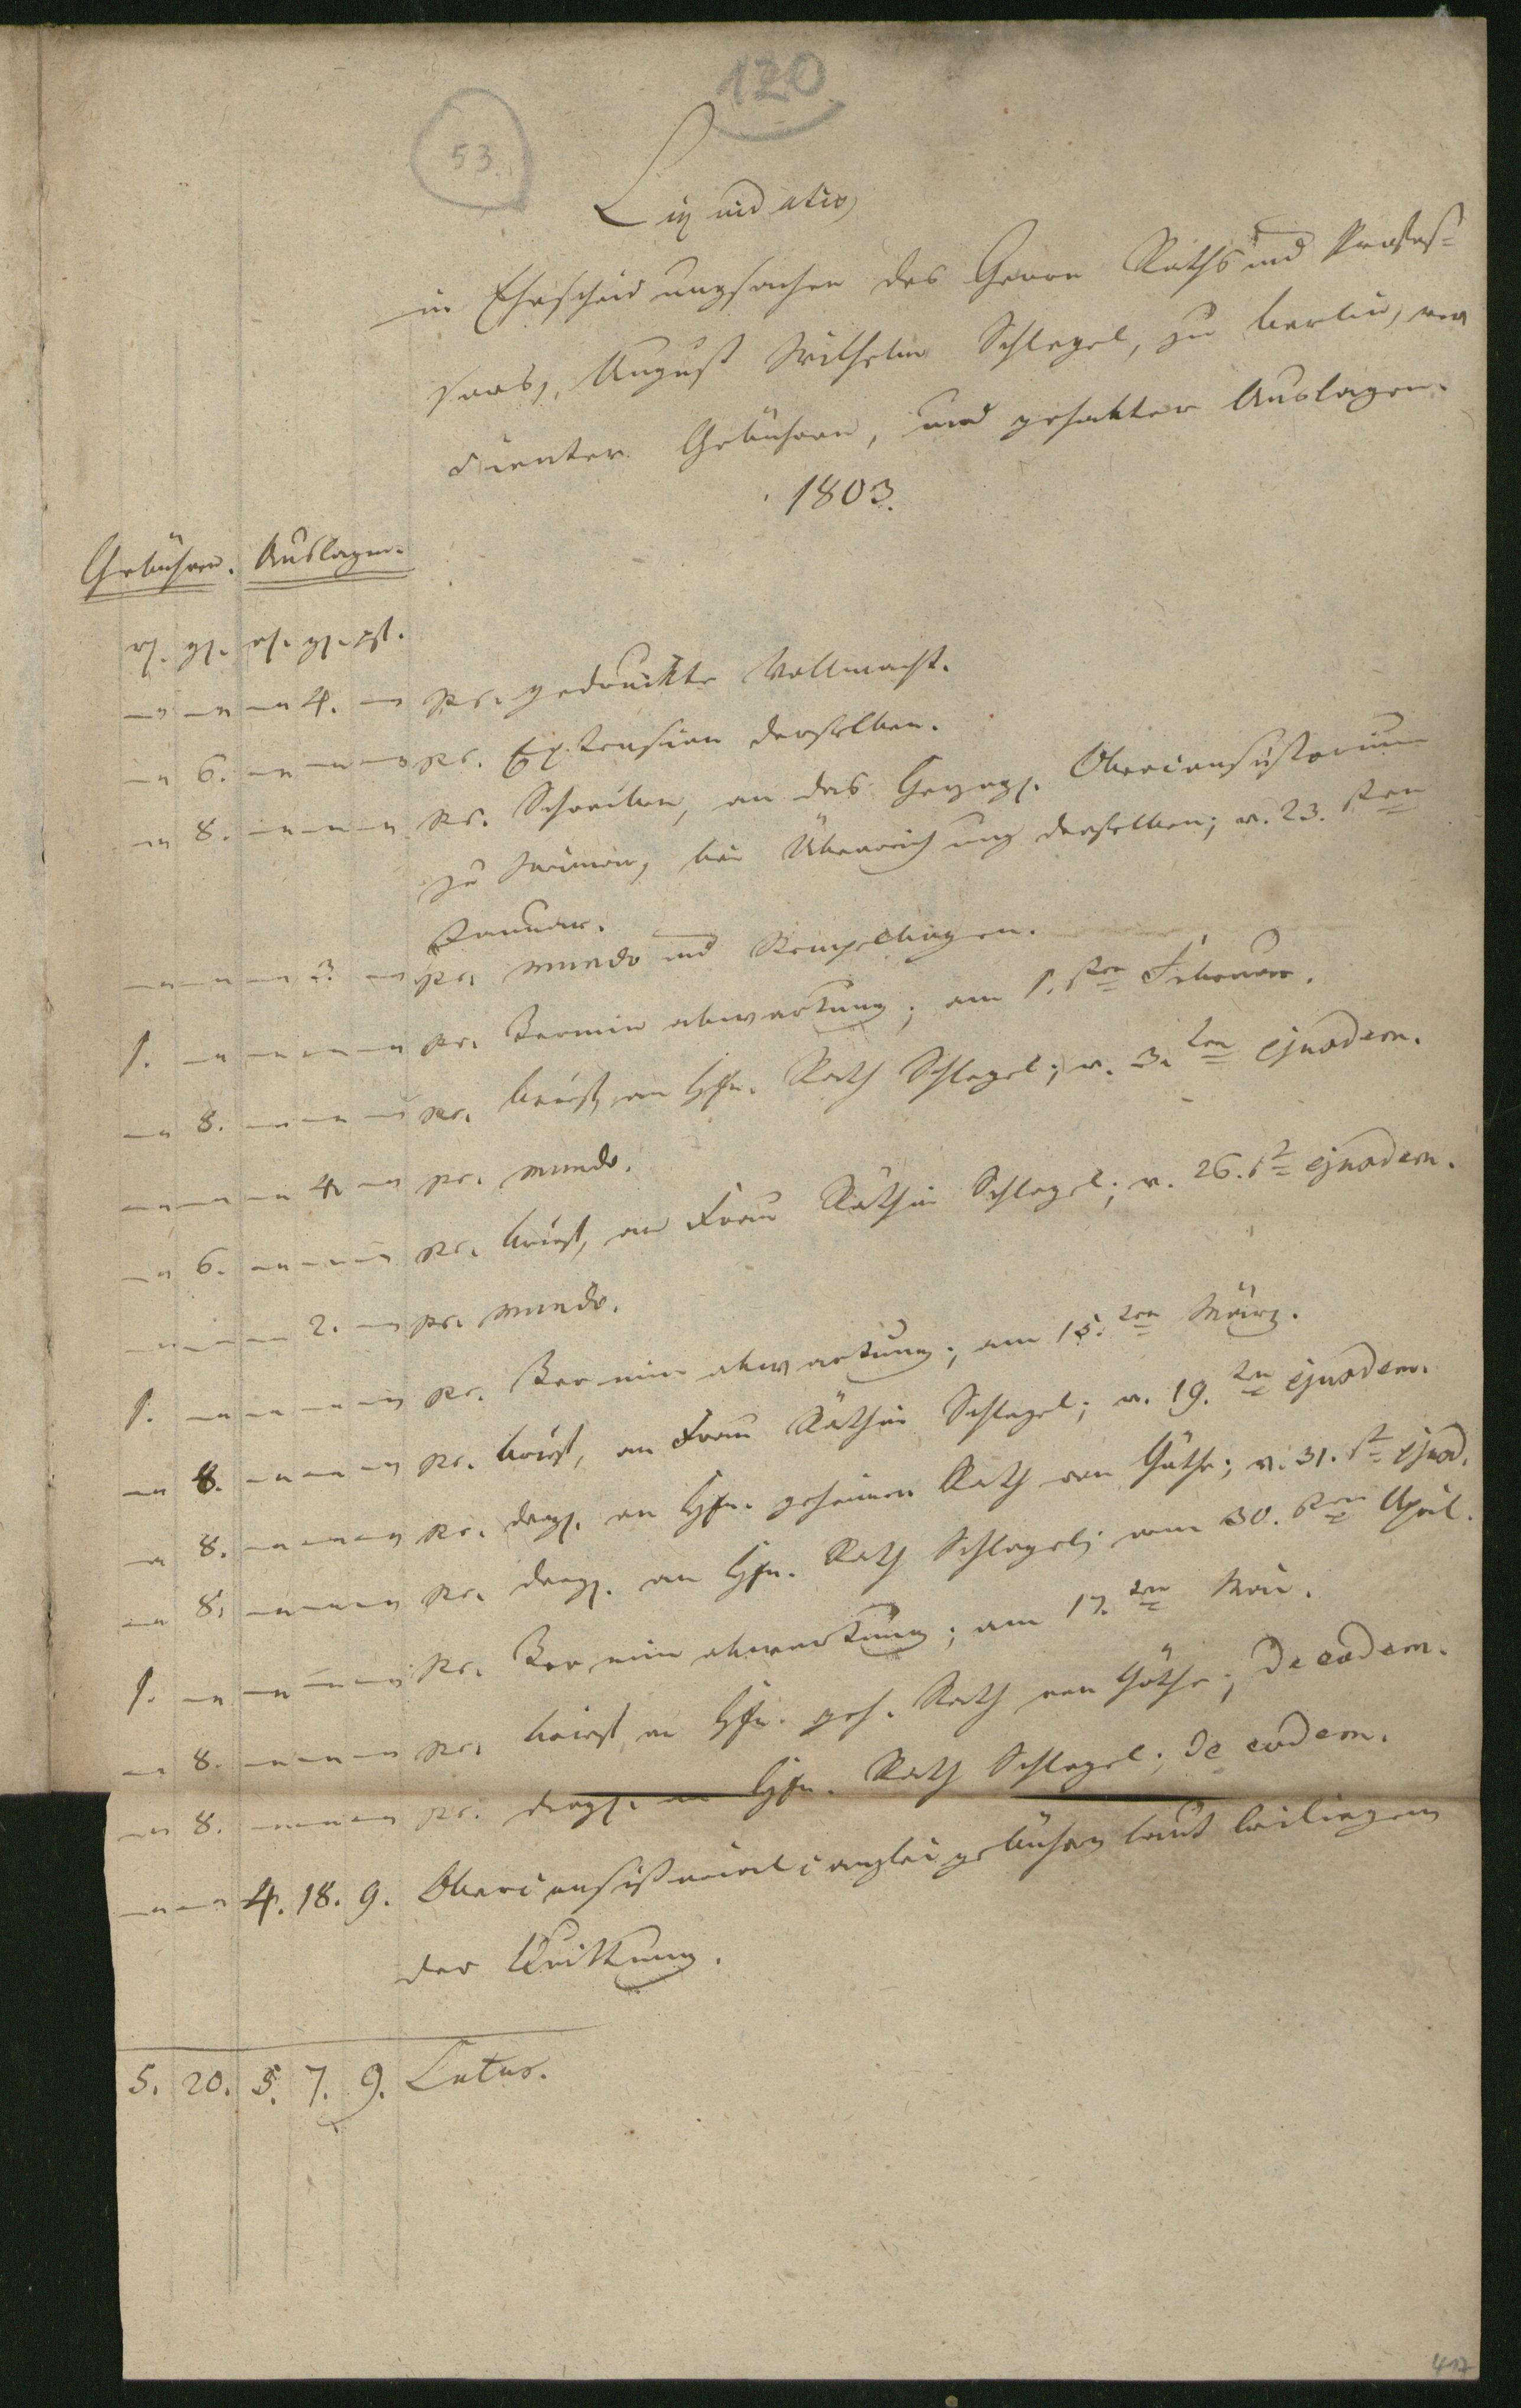 120
53.
Liquidatio
in Ehescheidungssachen des Herrn Raths und Profes=
sors, August Wilhelm Schlegel, zu Berlin, ver
dienter Gebühren, und gehabter Auslagen.
1803.
Gebühren. Auslagen.
rh. gl. rh. gl. pf.
— — — 4. — pr. gedruckte Vollmacht.
— 6. — — — pr. Extension derselben.
— 8. — — — pr. Schreiben, an das Herzogl. Oberconsistorium
zu Weimar, bei Überreichung derselben; v. 23. sten
Januar.
— — — 3. — pr. mundo und Stempelbogen.
1. — — — — pr. Terminabwartung; am 1. sten Februar.
— 8. — — — pr. Brief, an Hrn. Rath Schlegel; v. 3. ten ejusdem.
— — — 4. — pr. mundo.
— 6. — — — pr. Brief, an Frau Räthin Schlegel; v. 26. st ejusdem.
— — — 2. — pr. mundo.
1. — — — — pr. Terminabwartung; am 15. ten März.
— 8. — — — pr. Brief, an Frau Räthin Schlegel; v. 19. ten ejusdem.
— 8. — — — pr. dergl. an Hrn. geheimen Rath von Göthe; v. 31. st ejusd.
— 8. — — — pr. dergl. an Hrn. Rath Schlegel; vom 30. sten April.
1. — — — — pr. Terminabwartung; am 17. ten Mai.
— 8. — — — pr. Brief, an Hrn. geh. Rath von Göthe; de eodem.
— 8. — — — pr. dergl. an Hrn. Rath Schlegel; de eodem.
— — 4. 18. 9. Oberconsistorialcanzleigebühren laut beiliegen
der Quittung.
5. 20. 5. 7. 9. Latus.
417